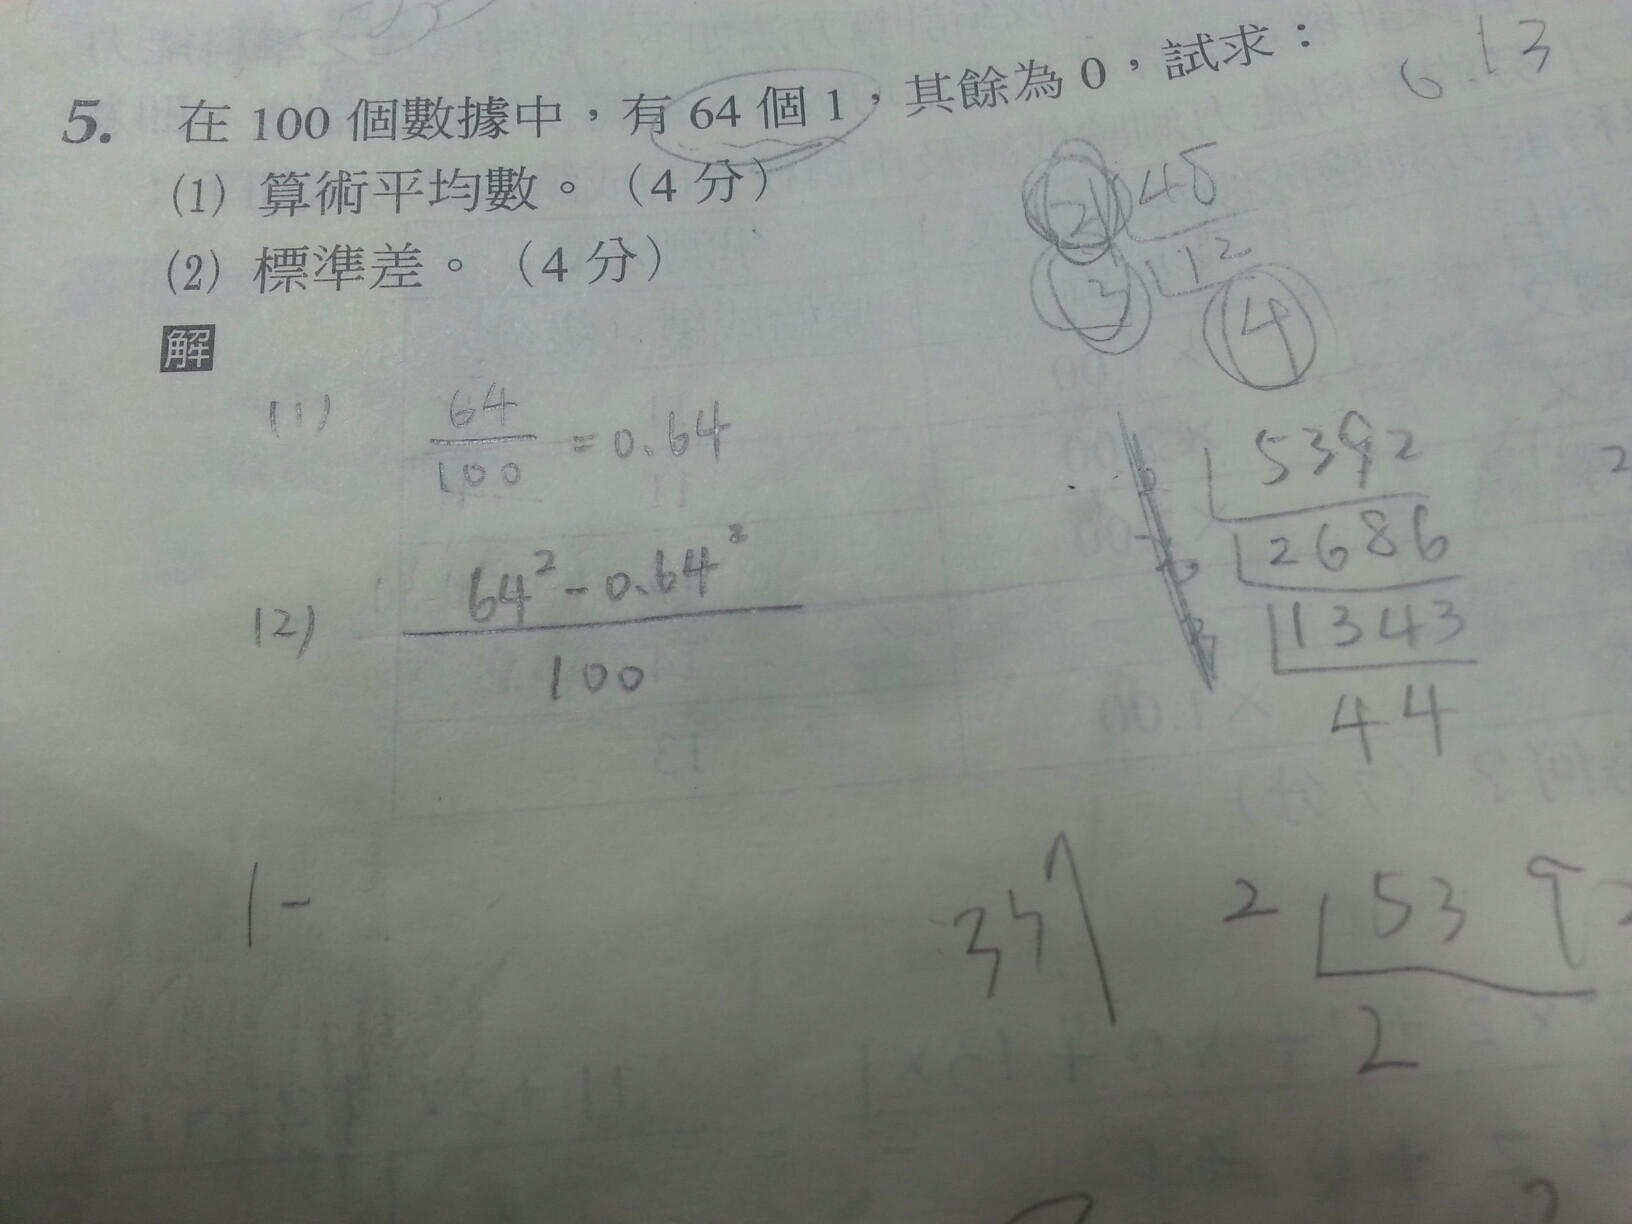 5. 在 100 個數據中，有 64 個 1，其餘為 0，試求：
(1) 算術平均數。（4 分）
(2) 標準差。（4 分）
解
(1) 64/100 = 0.64
(2) 64² - 0.64² / 100
1-
6.13
2 48
3 12
4
5392
2686
1343
44
2 5392
2